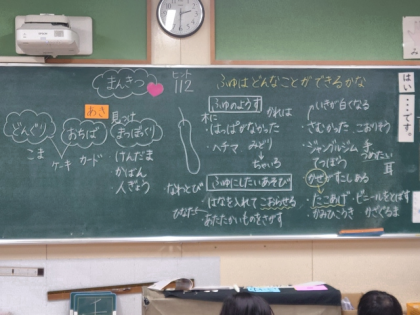 まんきつ
ヒント
112
ふゆはどんなことができるかな
はい、…です。
あき
見つけ
どんぐり
おちば
まつぼっくり
こま
ケーキ カード
けんだま
かばん
人ぎょう
なわとび
ひなた
ふゆのようす
木に かれは
・はっぱがなかった
・ヘチマ みどり
↓
ちゃいろ
ふゆにしたいあそび
・はなを入れてこおらせる
・あたたかいものをさがす
・いきが白くなる
さむかった こおりそう
・ジャングルジム 手
てつぼう つめたい
耳
かぜがすこしある
・たこあげ ・ビニールをとばす
・かみひこうき かざぐるま